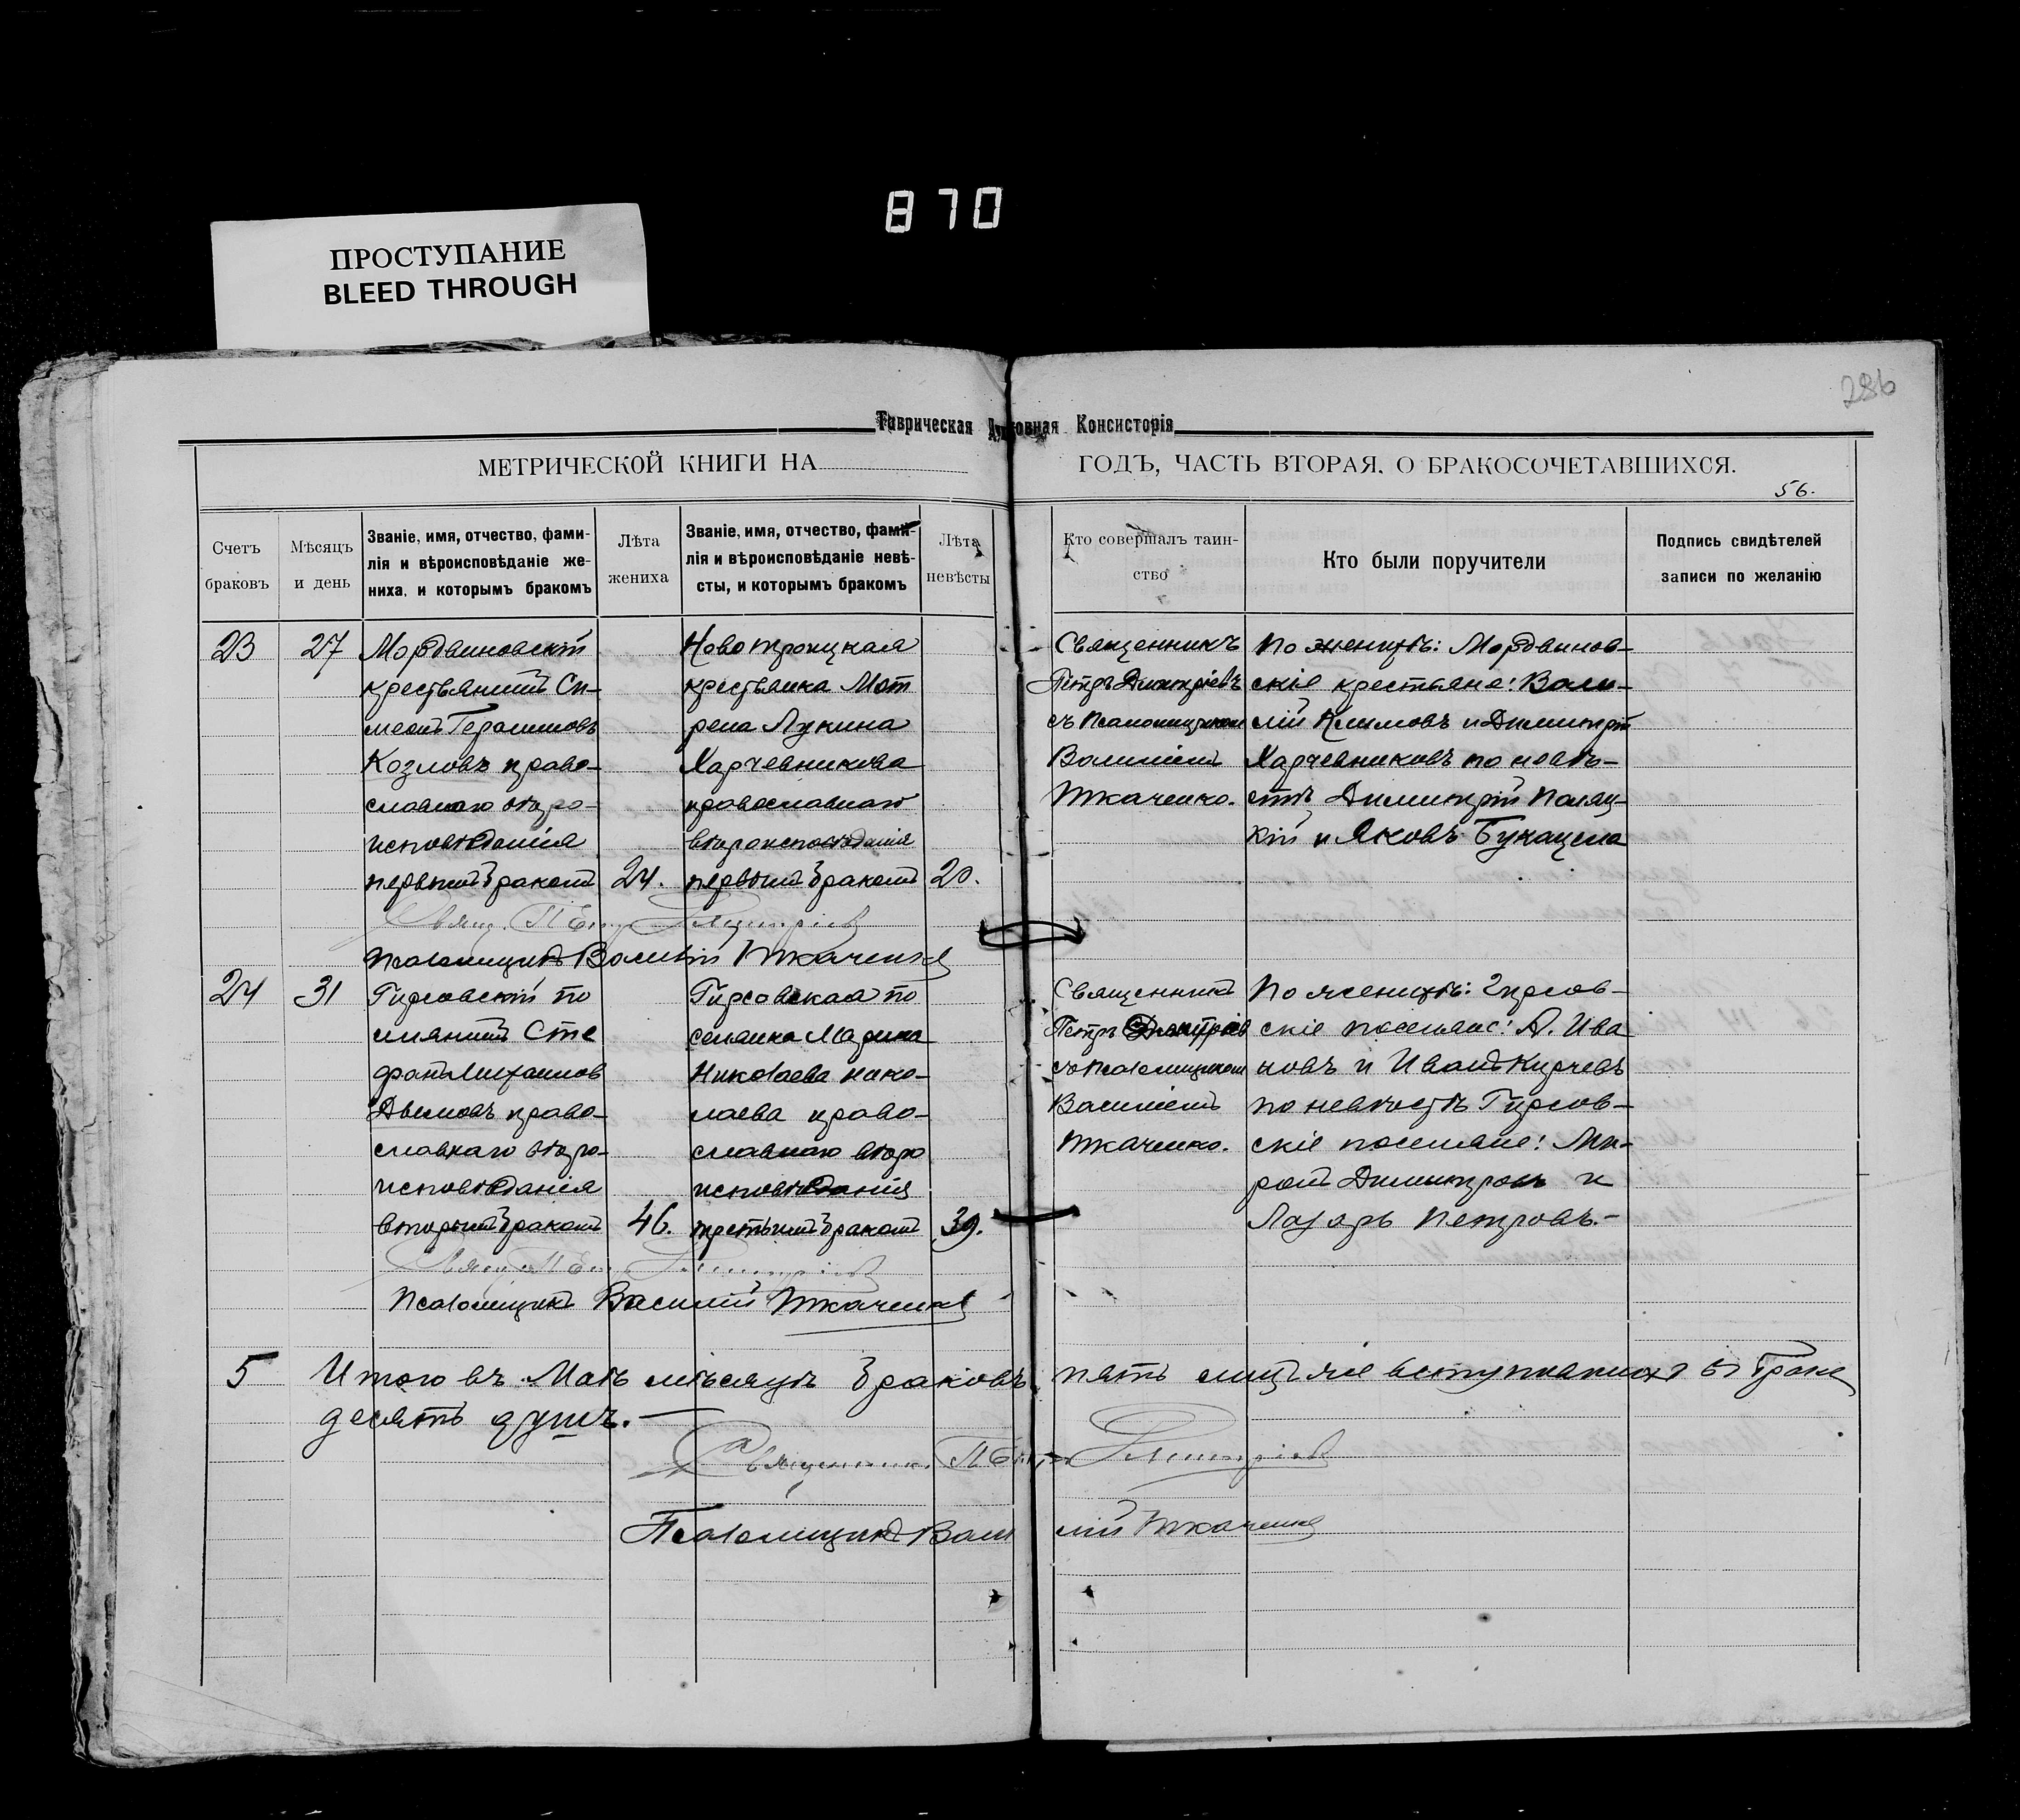 870
ПРОСТУПАНИЕ
BLEED THROUGH
286
Таврическая Духовная Консисторія
МЕТРИЧЕСКОЙ КНИГИ НА
ГОДЪ, ЧАСТЬ ВТОРАЯ. О БРАКОСОЧЕТАВШИХСЯ.
56.
Счетъ
браковъ
Мѣсяцъ
и день
Званіе, имя, отчество, фами-
лія и вѣроисповѣданіе же-
ниха, и которымъ бракомъ
Лѣта
жениха
Званіе, имя, отчество, фами-
лія и вѣроисповѣданіе невѣ-
сты, и которымъ бракомъ
Лѣта
невѣсты
Кто совершалъ таин-
ство
Кто были поручители
Подпись свидѣтелей
записи по желанію
23
27
Мордвиновскій
крестьянинъ Си-
меонъ Герасимовъ
Козловъ право-
славнаго вѣро-
исповѣданія
первымъ бракомъ
24.
Новотроицкая
крестьянка Мот
рена Лукина
Харчевникова
православнаго
вѣроисповѣданія
первымъ бракомъ
20.
Священникъ
Петръ Димитріевъ
съ псаломщикомъ
Василіемъ
Ткаченко.
По женихѣ: Мордвинов-
скіе крестьяне: Васи-
лій Климовъ и Димитрій
Харчевниковъ по невѣ-
стѣ Димитрій
и Яковъ
Свящ. Петръ Димитріев
Псаломщикъ Василій Ткаченко
24
31
Гирсовскій по
селянинъ Сте
фанъ Михаилов
православнаго вѣро-
исповѣданія
вторымъ бракомъ
46.
Гирсовская по
селянка Марина
Николаева Нико-
лаева право-
славнаго вѣро
исповѣданія
третьимъ бракомъ
39.
Священникъ
Петръ Димитріев
съ псаломщикомъ
Василіемъ
Ткаченко.
По женихѣ: Гирсов-
скіе поселяне: Д. Ива
новъ и Иванъ Курчевъ
по невѣстѣ Гирсов-
скіе поселяне: Ми-
ронъ Димитровъ и
Лазарь Петровъ.-
Свящ. Петръ Димитріев
Псаломщикъ Василій Ткаченко
5
Итого въ Маѣ мѣсяцѣ браковъ пять лицъ же вступившихъ въ бракъ
десять душъ.-
Священникъ Петръ Димитріев
Псаломщикъ Василій Ткаченко